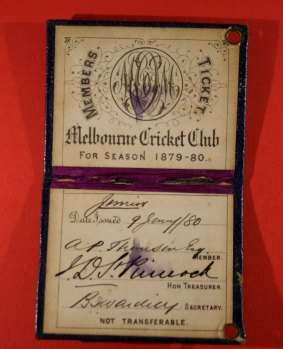 MEMBERS TICKET.
MCC
Melbourne Cricket Club
FOR SEASON 1879-80.
Junior
Date Issued 9 Jany/80
A. P. Thomson Esq
MEMBER.
HON TREASURER.
B. Wardill
SECRETARY.
NOT TRANSFERABLE.